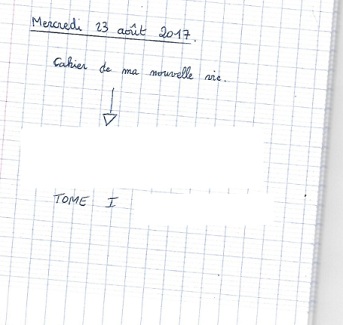 Mercredi 23 août 2017.
Cahier de ma nouvelle vie.
TOME I